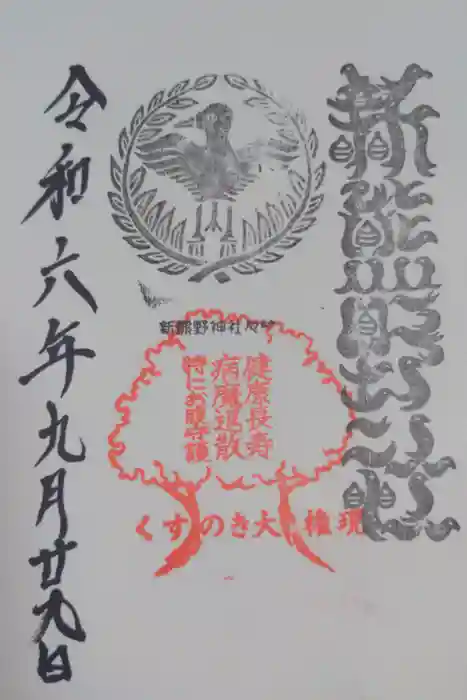 新熊野神社
新熊野神社
健康長寿
病魔退散
特にお腹守護
くすのき大権現
令和六年九月廿九日